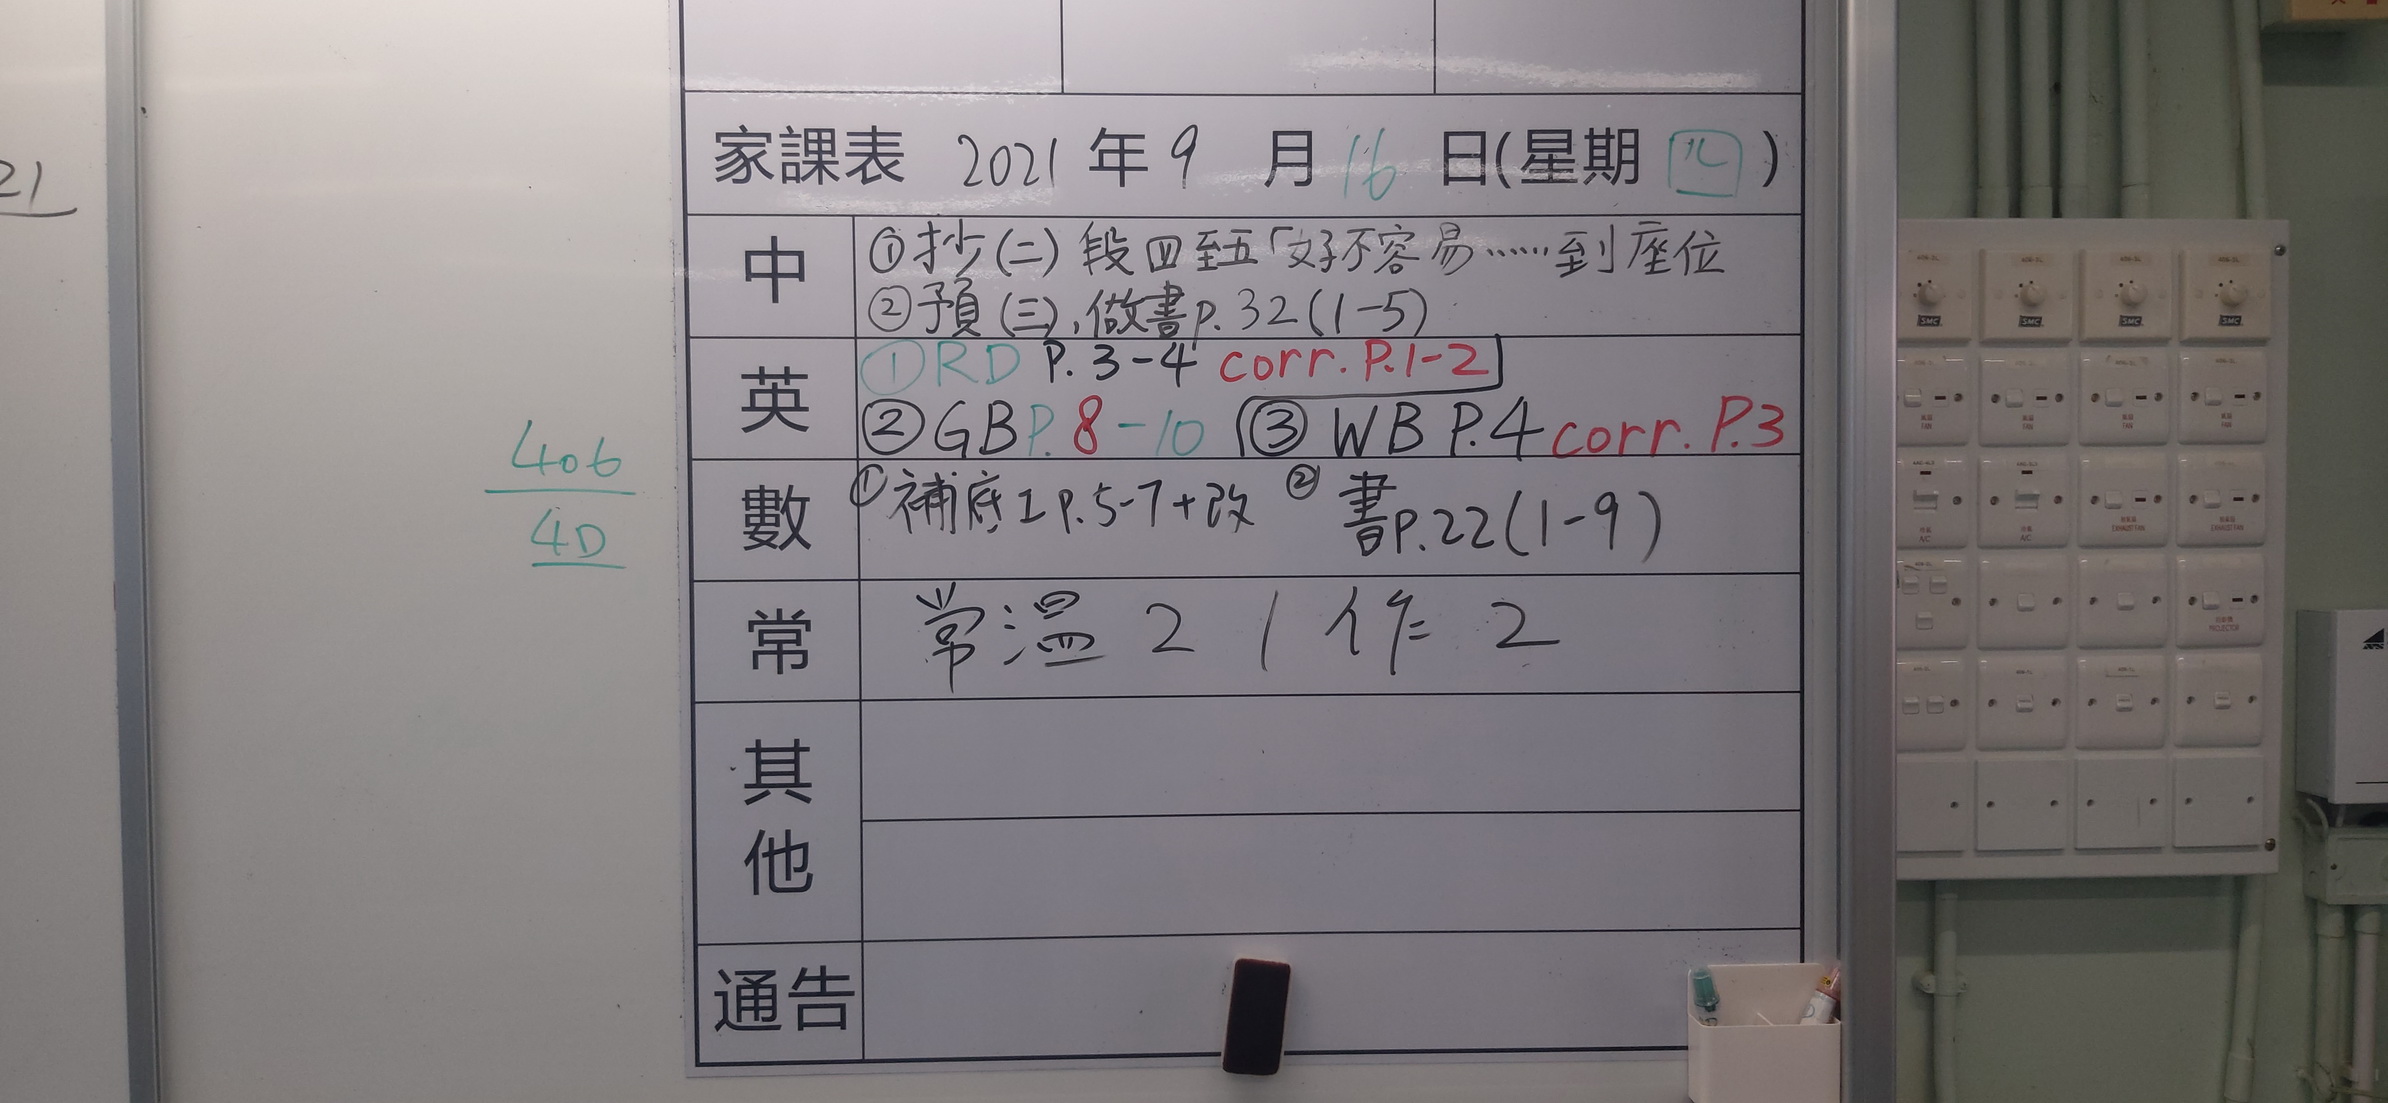 21
家課表 2021 年 9 月 16 日(星期 四)
中
①抄(二)段四至五「好不容易……到座位
②預(三),做書p.32(1-5)
英
①RD P.3-4 corr. P.1-2
②GB P.8-10 ③WB P.4 corr. P.3
數
①補底工P.5-7+改 ②書P.22(1-9)
常
常溫 2 / 作 2
其他
通告
406
4D
SMC
SMC
SMC
SMC
FAN
FAN
FAN
FAN
A/C
A/C
EXHAUST FAN
EXHAUST FAN
PROJECTOR